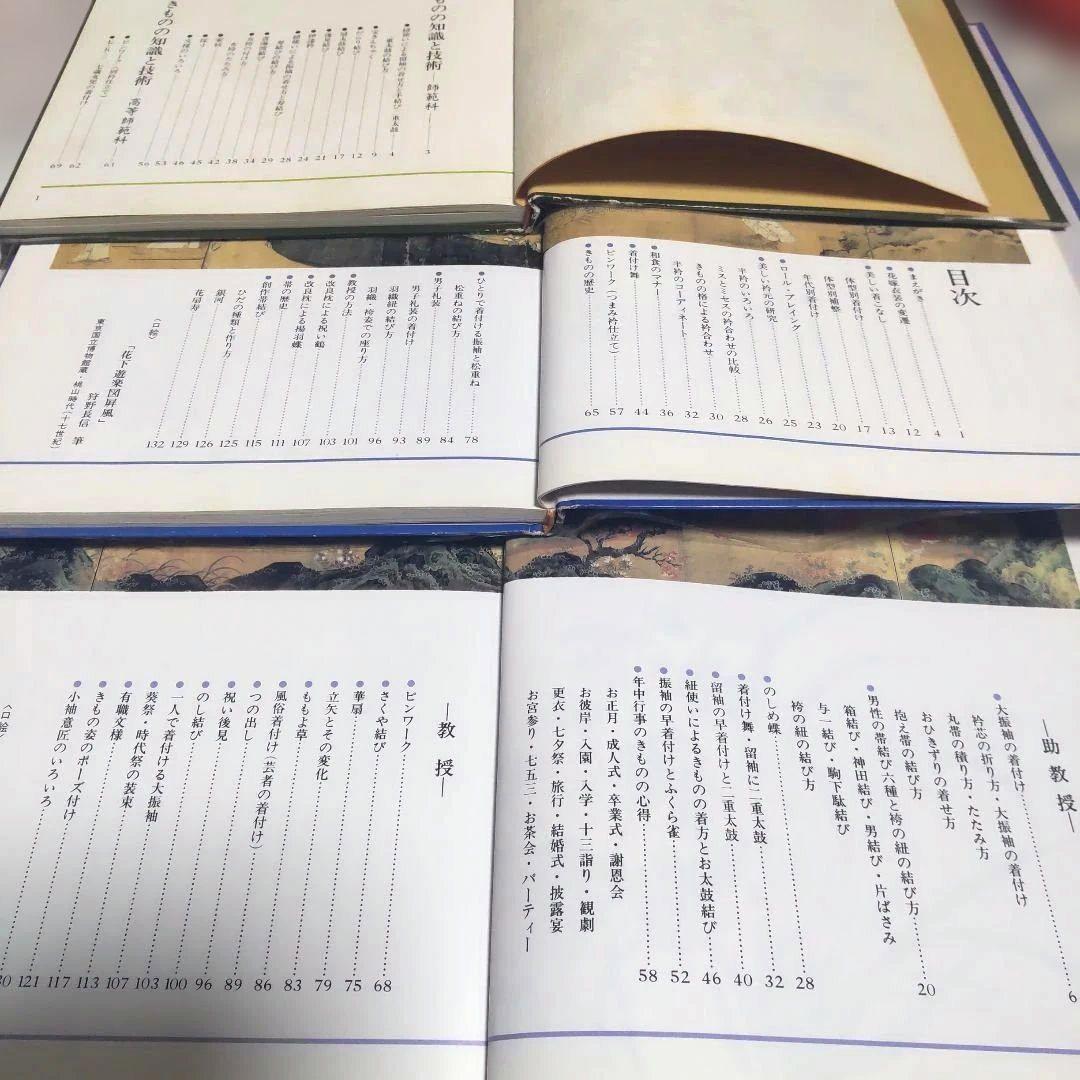 ものの知識と技術 ―師範科―
3
二重太鼓の結び方
4
9
12
17
21
24
28
29
34
38
42
45
46
53
56
きものの知識と技術 高等師範科
61
62
69
1
目次
●まえがき 1
●花嫁衣装の変遷 4
●美しい着こなし 12
体型別着付け 13
体型別補整 17
年代別着付け 20
●ロール・プレイング 23
●美しい衿元の研究 25
半衿のいろいろ 26
ミスとミセスの衿合わせの比較 28
きものの格による衿合わせ 30
半衿のコーディネート 32
●和食のマナー 36
●着付け舞 44
●ピンワーク(つまみ衿仕立て) 57
●きものの歴史 65
●ひとりで着付ける振袖と松重ね 78
松重ねの結び方 84
●男子礼装 89
男子礼装の着付け 93
羽織紐の結び方 96
羽織・袴姿での座り方
●教授の方法 101
●改良枕による祝い鶴 103
●改良枕による揚羽蝶 107
●帯の歴史 111
●創作帯結び 115
ひだの種類と作り方 125
銀河 126
花扇寿 129
132
〈口絵〉
「花下遊楽図屏風」 狩野長信 筆
東京国立博物館蔵・桃山時代(十七世紀)
―助教授―
●大振袖の着付け 6
衿芯の折り方・大振袖の着付け
丸帯の積り方・たたみ方
おひきずりの着せ方
抱え帯の結び方
●男性の帯結び六種と袴の紐の結び方 20
箱結び・神田結び・男結び・片ばさみ
与一結び・駒下駄結び
袴の紐の結び方 28
●のしめ蝶 32
●着付け舞・留袖に二重太鼓 40
●留袖の早着付けと二重太鼓 46
●紐使いによるきものの着方とお太鼓結び
●振袖の早着付けとふくら雀 52
●年中行事のきものの心得 58
お正月・成人式・卒業式・謝恩会
お彼岸・入園・入学・十三詣り・観劇
更衣・七夕祭・旅行・結婚式・披露宴
お宮参り・七五三・お茶会・パーティー
―教授―
●ピンワーク 68
●さくや結び 75
●華扇 79
●立矢とその変化 83
●ももよ草 86
●風俗着付け(芸者の着付け) 89
●つの出し 96
●祝い後見 100
●のし結び 103
●一人で着付ける大振袖 107
●葵祭・時代祭の装束 113
●有職文様 117
●きもの姿のポーズ付け 121
●小袖意匠のいろいろ
〈口絵〉